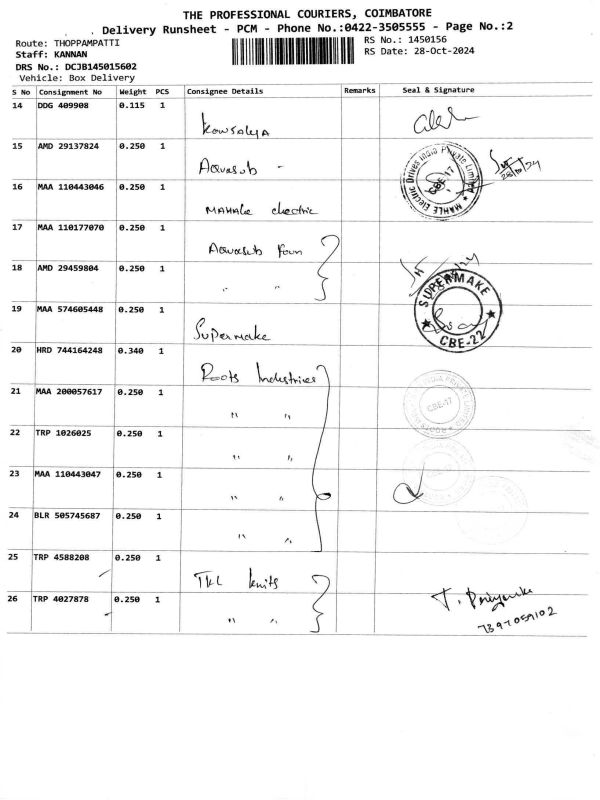 THE PROFESSIONAL COURIERS, COIMBATORE
Delivery Runsheet - PCM - Phone No.:0422-3505555 - Page No.:2
Route: THOPPAMPATTI
RS No.: 1450156
Staff: KANNAN
RS Date: 28-Oct-2024
DRS No.: DCJB145015602
Vehicle: Box Delivery
S No Consignment No Weight PCS Consignee Details Remarks Seal & Signature
14 DDG 409908 0.115 1 Kowsalya
15 AMD 29137824 0.250 1 Aquasub -
16 MAA 110443046 0.250 1 MAHale electric
MAHLE Electric Drives India Private Limited
CBE-17
17 MAA 110177070 0.250 1 Aquasub foun
18 AMD 29459804 0.250 1 " "
19 MAA 574605448 0.250 1 Supermake
SUPERMAKE
CBE-22
20 HRD 744164248 0.340 1 Roots Industries
21 MAA 200057617 0.250 1 " "
CBE-17
22 TRP 1026025 0.250 1 " "
23 MAA 110443047 0.250 1 " "
24 BLR 505745687 0.250 1 " "
25 TRP 4588208 0.250 1 TKL knits
26 TRP 4027878 0.250 1 " "
7397059102